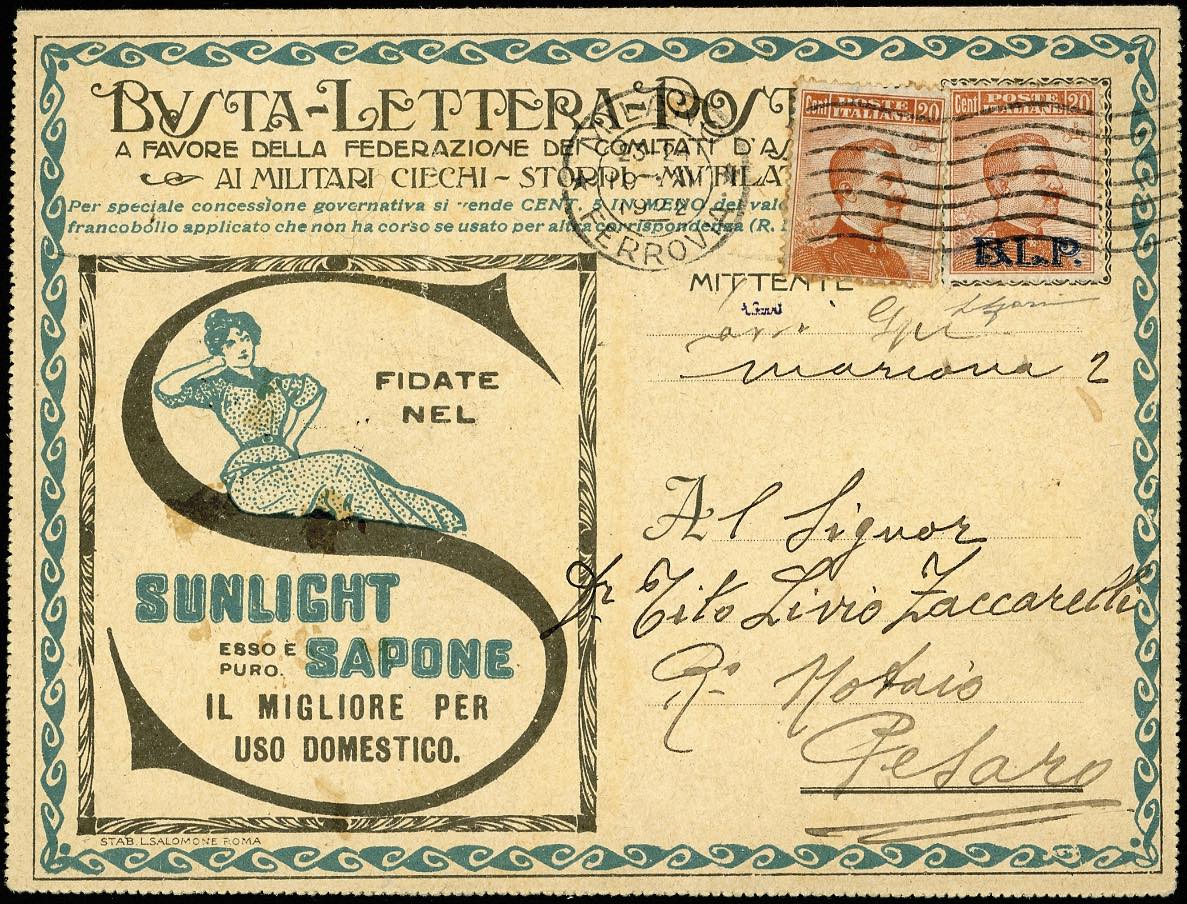 BVSTA-LETTERA-POST
A FAVORE DELLA FEDERAZIONE DEI COMITATI D'AS
AI MILITARI CIECHI - STORPI - MVTILA
Per speciale concessione governativa si vende CENT. 5 IN MENO del valo
francobollo applicato che non ha corso se usato per altra corrispondenza (R.
FERROVIA
Cent POSTE 20
ITALIANE
Cent POSTE 20
B.L.P.
MITTENTE
2
FIDATE
NEL
SUNLIGHT
ESSO È
PURO.
SAPONE
IL MIGLIORE PER
USO DOMESTICO.
STAB. L. SALOMONE ROMA
Al Signor
Dr Tito Livio Zaccarelli
R. Notaio
Pesaro